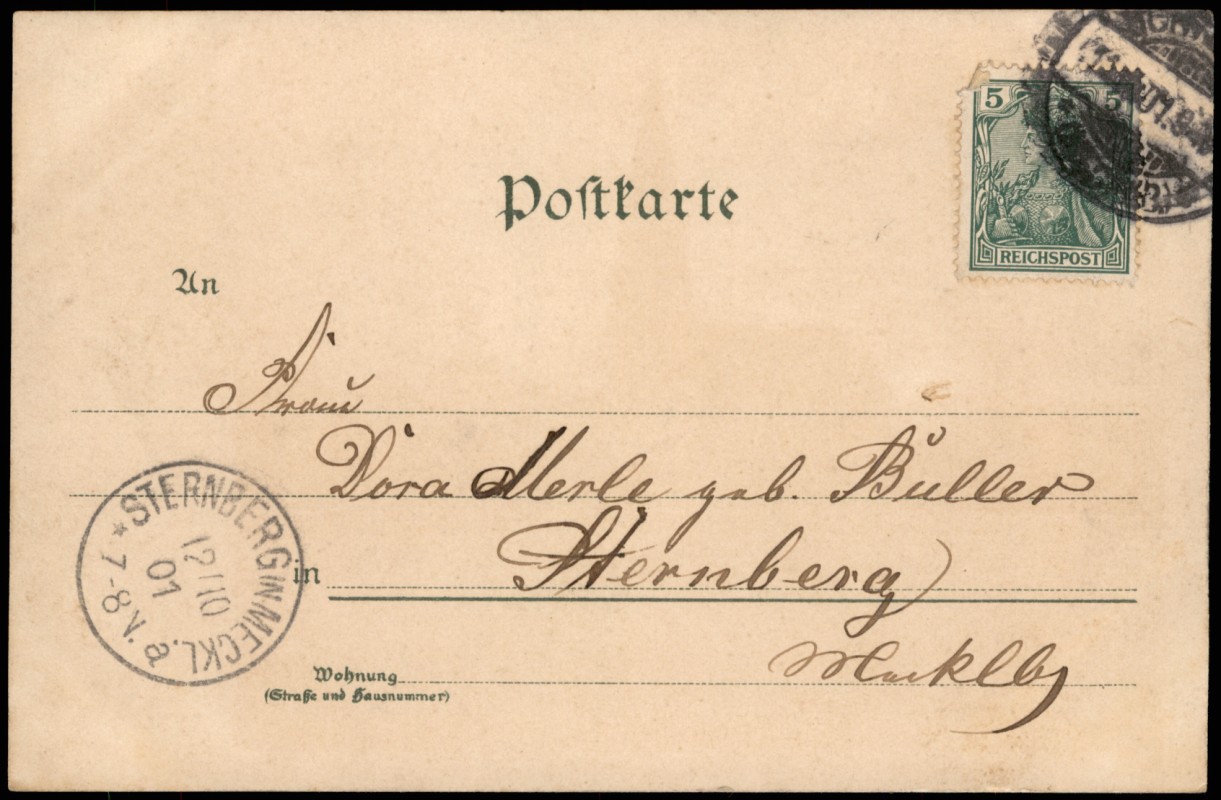 5 5
REICHSPOST
Postkarte
An
Frau
Dora Merle geb. Büller
in Sternberg
Mecklbg
Wohnung
(Straße und Hausnummer)
STERNBERG IN MECKL. a
12/10
01
7-8 N.